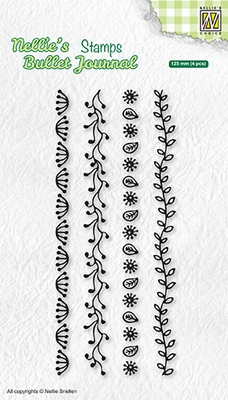 NELLIE'S
CHOICE
Nellie's Stamps
Bullet Journal
123 mm (4 pcs)
All copyrights © Nellie Snellen